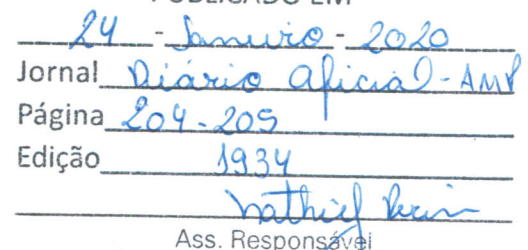 PUBLICADO EM
24 - Janeiro - 2020
Jornal Diário Oficial - AMP
Página 204-205
Edição 1934
Ass. Responsável